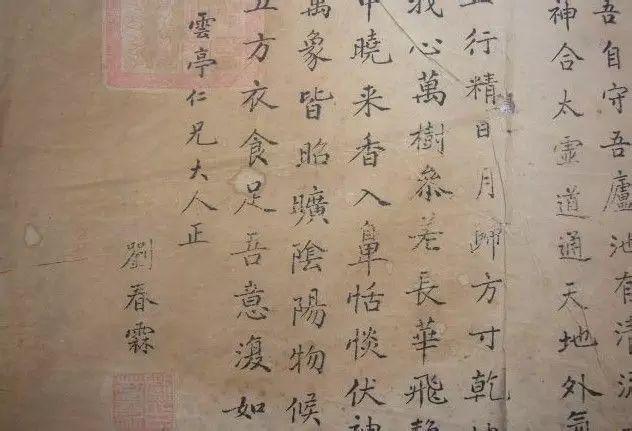 吾自守吾廬池有清流
神合太霊道通天地外氣
行精日月歸方寸乾
我心萬樹參差長華飛静
中曉来香入鼻恬惔伏神
萬象皆昭曠陰陽物候
五方衣食足吾意澓如
雲亭仁兄大人正
劉春霖